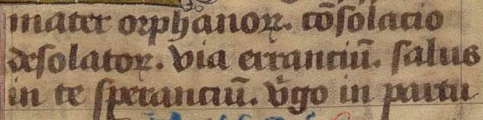 mater orphanoꝝ. cōsolacio
desolatoꝝ. via errantiū. salus
in te sperantiū. v̄go in partu